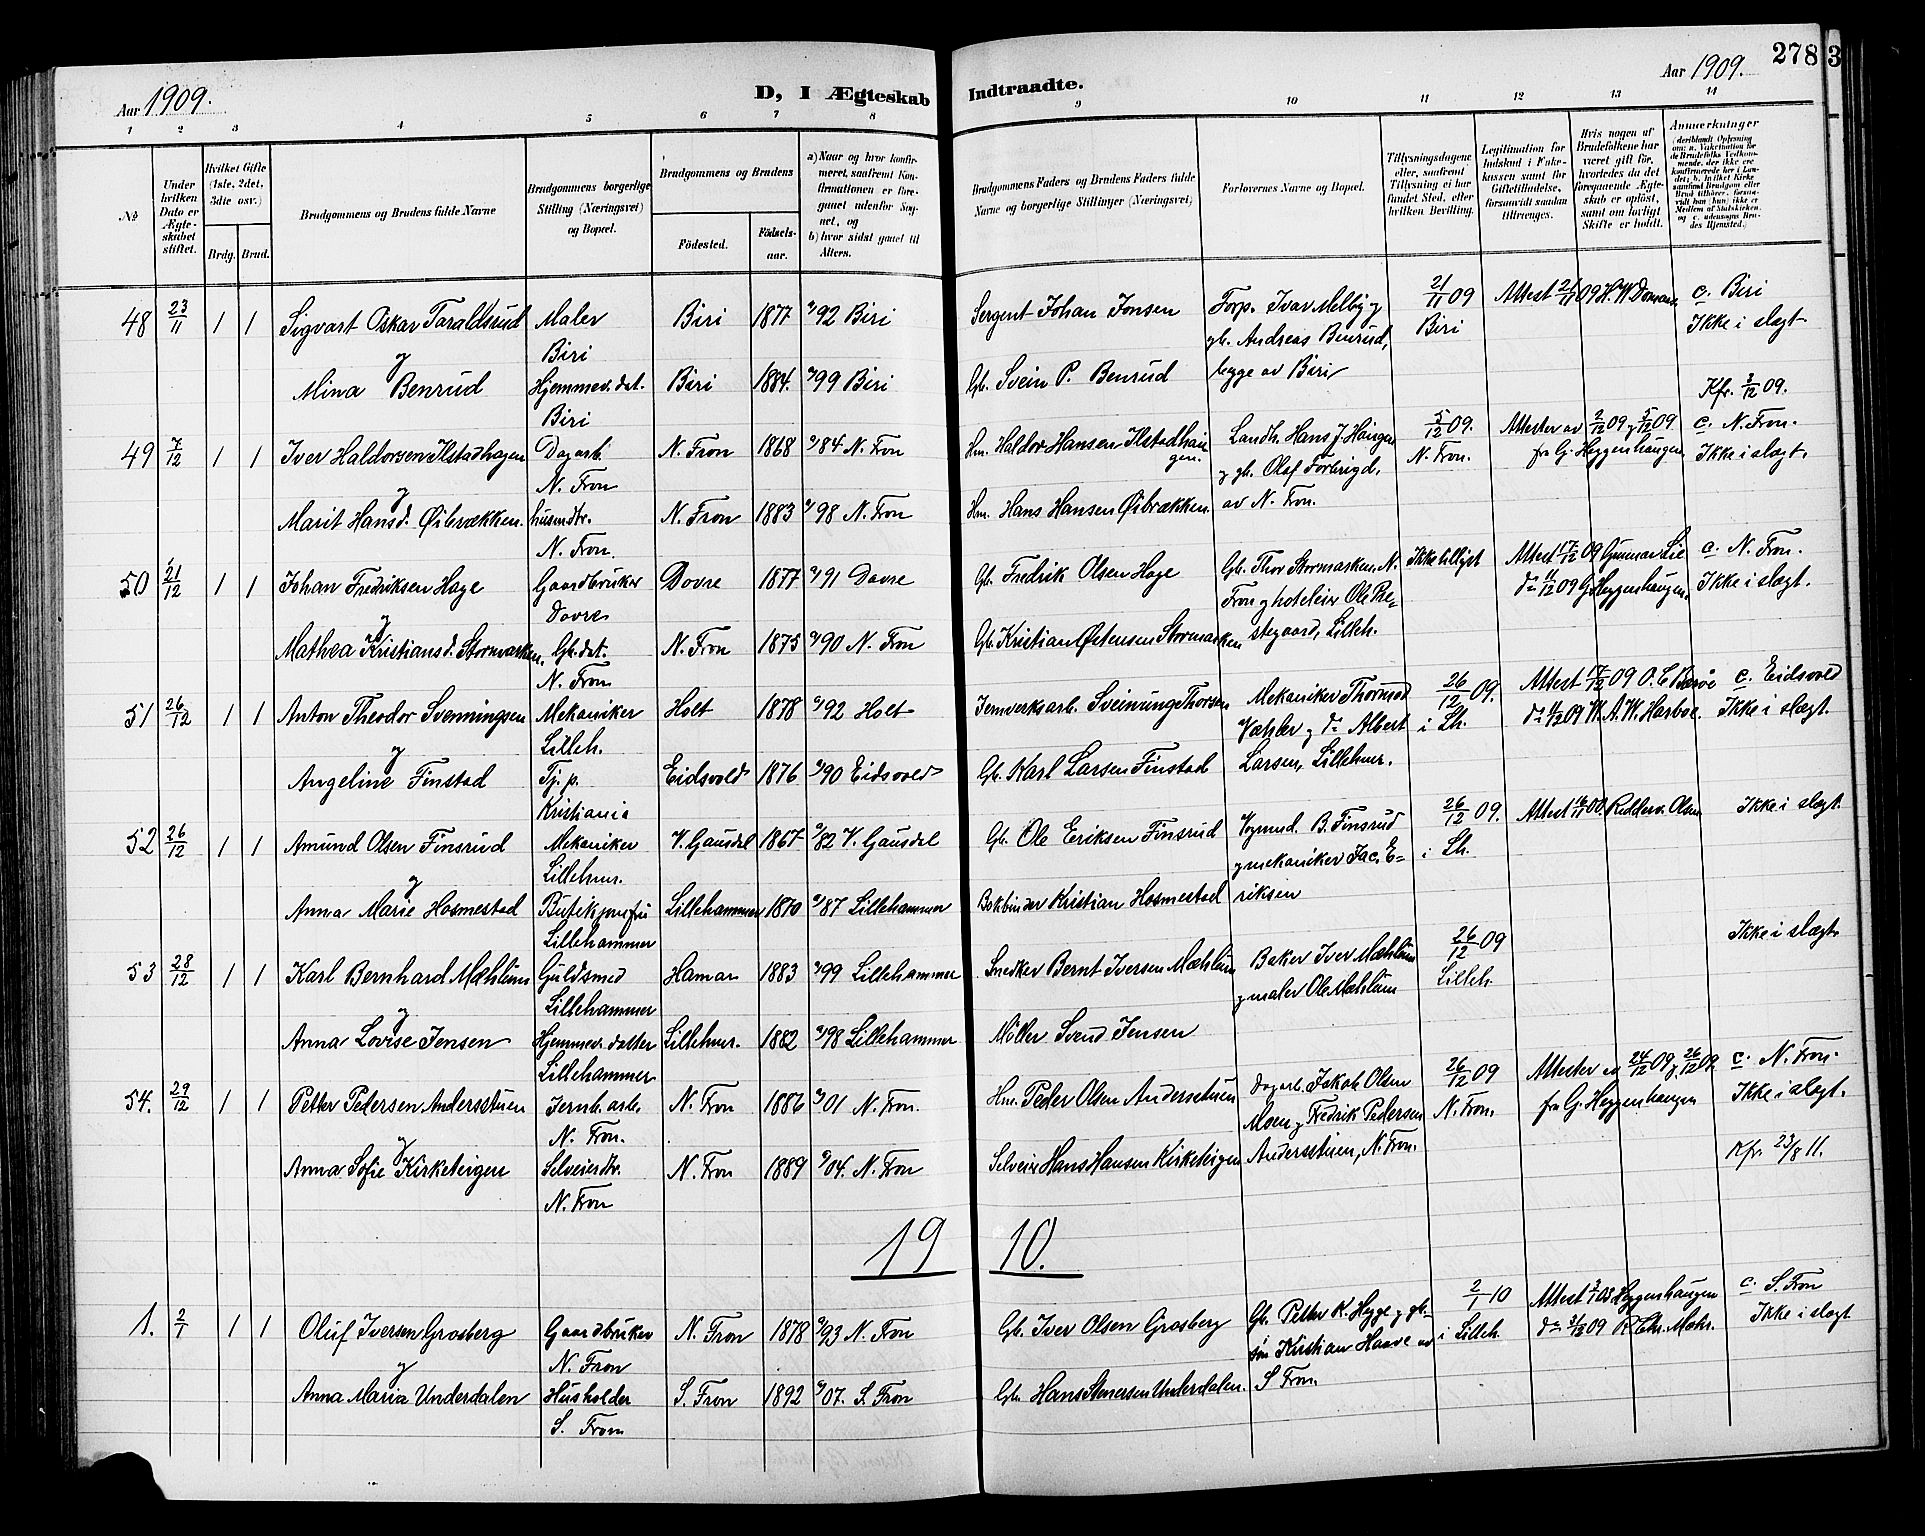 Aar 1909.
D, I Ægteskab Indtraadte.
Aar 1909.
278
3
1 2 3 4 5 6 7 8 9 10 11 12 13 14
No
Under hvilken Dato er Ægteskabet stiftet.
Hvilket Gifte (1ste, 2det, 3dte osv.)
Brdg. Brud.
Brudgommens og Brudens fulde Navne
Brudgommens borgerlige Stilling (Næringsvei) og Bopæl.
Brudgommens og Brudens
Födested.
Födsels-aar.
a) Naar og hvor konfirmeret, saafremt Konfirmationen er foregaaet udenfor Sognet, og b) hvor sidst gaaet til Alters.
Brudgommens Faders og Brudens Faders fulde Navne og borgerlige Stillinger (Næringsvei)
Forlovernes Navne og Bopæl.
Tillysningsdagene eller, saafremt Tillysning ei har fundet Sted, efter hvilken Bevilling.
Legitimation for Indskud i Enkekassen samt for Giftetilladelse, forsaavidt saadan tiltrænges.
Hvis nogen af Brudefolkene har været gift før, hvorledes da det foregaaende Ægteskab er opløst, samt om lovligt Skifte er holdt.
Anmerkninger
48 23/11 1 1 Sigvart Oskar Taraldsrud Maler Biri 1877 92 Biri Sergent Johan Jonsen Forp. Ivar Melby g 21/11 09 Attest 21/11 09 c. Biri
y Biri gb. Andreas Benrud, Biri Ikke i slægt
Mina Benrud Hjemmev. dat. Biri 1884. 99 Biri Gb. Svein P. Benrud begge av Biri
Biri Kfr. 3/12 09.
49 7/12 1 1 Iver Haldorsen Ilstadhagen Dagarb. N. Fron 1868 84 N. Fron Hm. Haldor Hansen Ilstadhaugen. Landh. Hans J. Haugen 5/12 09. Attester av 2/12 09 g 5/12 09 c. N. Fron.
y N. Fron g gb. Olaf Forbrigd, N. Fron. fra G. Heggenhaugen Ikke i slægt.
Marit Hansd. Øibrækken. husmdtr. N. Fron 1883 98 N. Fron Hm. Hans Hansen Øibrækken. av N. Fron.
N. Fron.
50 21/12 1 1 Johan Fredriksen Hage Gaardbruker Dovre 1877 91 Dovre Gb. Fredrik Olsen Hage Gb. Thor Stormarken, N. Ikke tillyst Attest 17/12 09 Gunnar Lie c. N. Fron.
y Dovre Fron g hoteleier Ole Pre- do 11/12 09 G. Heggenhaugen. Ikke i slægt.
Mathea Kristiansd. Stormarken. Gb. dat. N. Fron 1875 90 N. Fron Gb. Kristian Østensen Stormarken stegaard, Lilleh.
N. Fron
51 26/12 1 1 Anton Theodor Svenningsen Mekaniker Holt 1878 92 Holt Jernverksarb. Sveinung Thorsen Mekaniker Thormod 26/12 09. Attest 17/12 09 c. Eidsvold
y Lilleh. Væhler g do Albert i Lh. W. A. W. Harboe. Ikke i slægt.
Angeline Finstad Tj. p. Eidsvold 1876 90 Eidsvold Gb. Karl Larsen Finstad Larsen, Lillehmr.
Kristiania
52 26/12 1 1 Amund Olsen Finsrud Mekaniker V. Gausdal 1867 82 V. Gausdal Gb. Ole Eriksen Finsrud Vognmd. B. Finsrud 26/12 09. Attest Olsen Ikke i slægt.
y Lillehmr. g mekaniker Jac. E- i Lh.
Anna Marie Hosmestad Butikjomfru Lillehammer 1870 87 Lillehammer Bokbinder Kristian Hosmestad riksen
Lillehammer
53 28/12 1 1 Karl Bernhard Mæhlum Guldsmed Hamar 1883 99 Lillehammer Snedker Bernt Iversen Mæhlum Baker Iver Mæhlum 26/12 09 Ikke i slægt
y Lillehammer g maler Ole Mæhlum Lilleh.
Anna Lovise Jensen Hjemmev. datter Lillehmr. 1882 98 Lillehammer Møller Svend Jensen
Lillehammer
54. 29/12 1 1 Petter Pedersen Andersstuen Jernb. arb. N. Fron 1886 01 N. Fron. Hm. Peder Olsen Andersstuen Dagarb. Jakob Olsen 26/12 09 Attester av 24/12 09 g 26/12 09 c. N. Fron.
y N. Fron. Moen g Fredrik Pedersen N. Fron. fra G. Heggenhaugen Ikke i slægt.
Anna Sofie Kirketeigen Selveierdtr. N. Fron 1889 04. N. Fron Selveier Hans Hansen Kirketeigen Andersstuen, N. Fron. Kfr. 23/8 11.
N. Fron
1910.
1. 2/1 1 1 Oluf Iversen Grosberg Gaardbruker N. Fron 1878 93 N. Fron Gb. Iver Olsen Grosberg Gb. Petter K. Hygge g gb- 2/1 10 Attest Heggenhaugen c. S. Fron
y N. Fron søn Kristian Haave av i Lilleh. do 31/12 09 Chr. Mohr. Ikke i slægt
Anna Maria Underdalen Husholder S. Fron 1892 07. S. Fron Gb. Hans Stenersen Underdalen. S Fron.
S. Fron